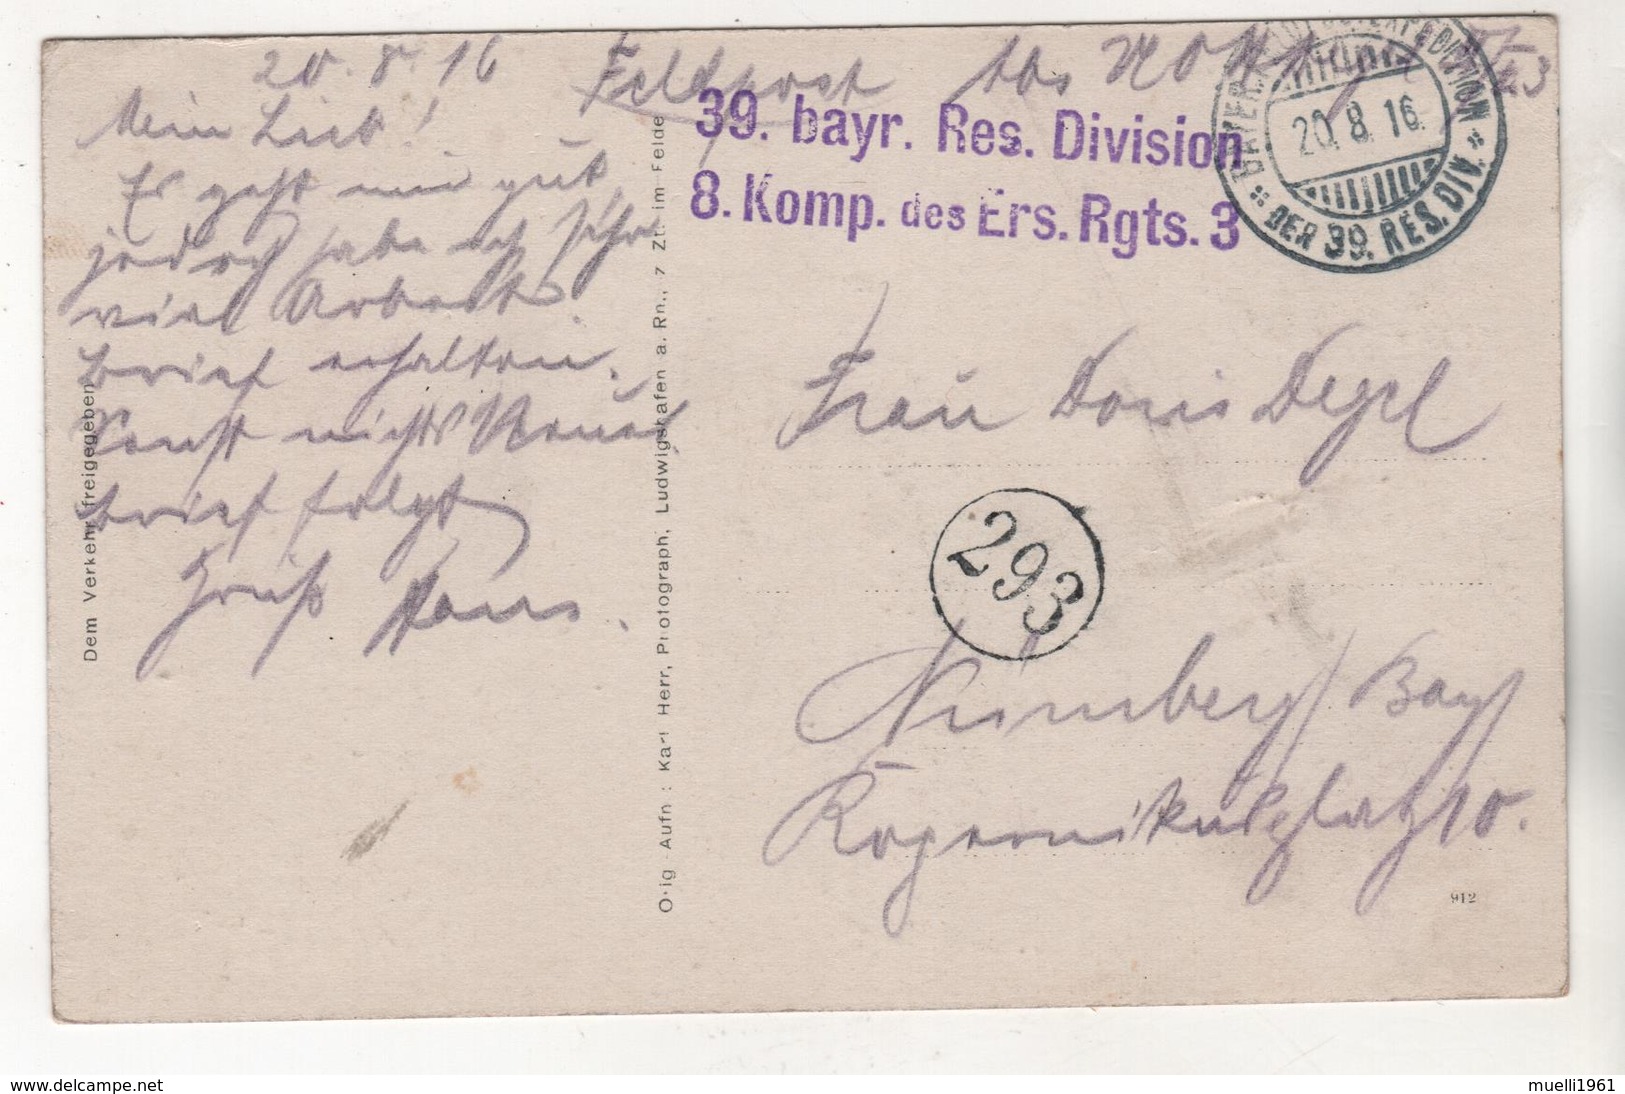 20.8.16 Feldpost
Mein Lieb!
Es geht mir gut,
jedoch habe ich sehr
viel Arbeit.
Brief erhalten.
Sonst nichts Neues
Brief folgt
Gruß Hans.
39. bayr. Res. Division
8. Komp. des Ers. Rgts. 3
20.8.16.
DER 39. RES. DIV.
Frau Doris Degel
293
Nürnberg / Bay
Kopernikusplatz 10.
912
Dem Verkehr freigegeben
Orig Aufn : Karl Herr, Photograph, Ludwigshafen a. Rh., z Zt. im Felde
www.delcampe.net
muelli1961